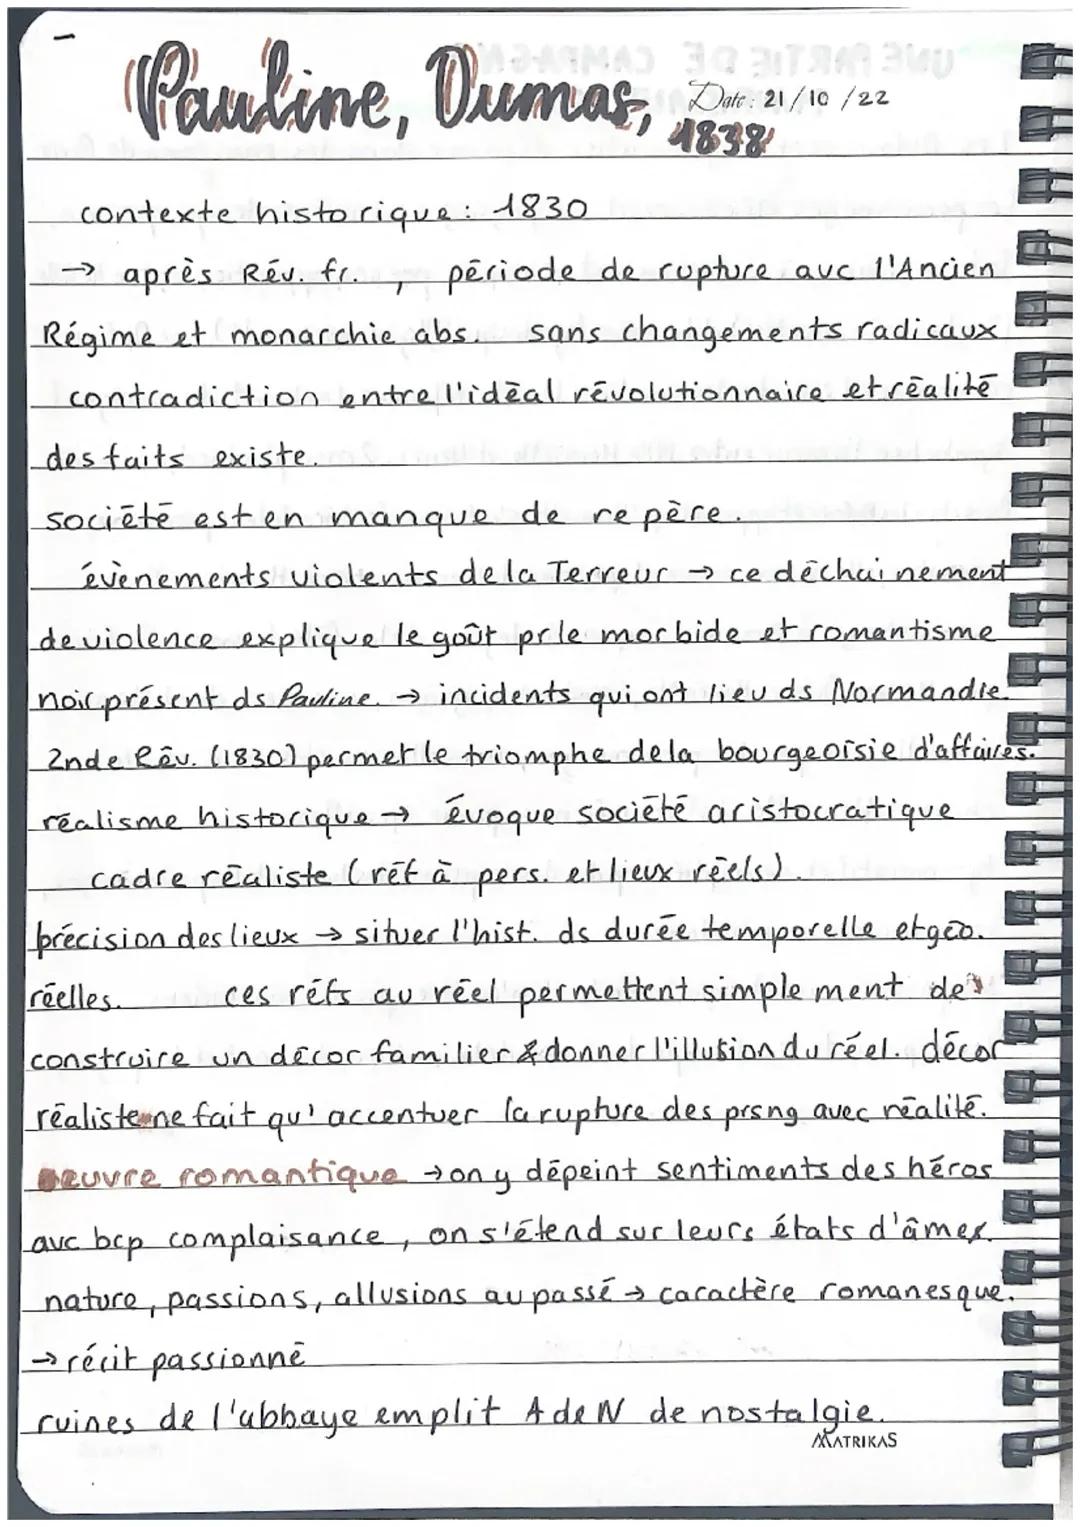 Pauline, Dumas, 1838
Date: 21/10/22
contexte historique: 1830
→ après Rév. fr., période de rupture avc l'Ancien
Régime et monarchie abs. sans changements radicaux
contradiction entre l'idéal révolutionnaire et réalité
des faits existe.
société est en manque de repère.
évènements violents de la Terreur → ce déchainement
de violence explique le goût pr le morbide et romantisme
noir présent ds Pauline. → incidents qui ont lieu ds Normandie.
2nde Rév. (1830) permet le triomphe de la bourgeoisie d'affaires.
réalisme historique → évoque société aristocratique
cadre réaliste (réf à pers. et lieux réels).
précision des lieux → situer l'hist. ds durée temporelle et géo.
réelles. ces réfs au réel permettent simplement de
construire un décor familier & donner l'illusion du réel. décor
réaliste ne fait qu'accentuer la rupture des prsng avec réalité.
oeuvre romantique → on y dépeint sentiments des héros
avc bcp complaisance, on s'étend sur leurs états d'âmes.
nature, passions, allusions au passé → caractère romanesque.
→ récit passionné
ruines de l'abbaye emplit A de N de nostalgie.
MATRIKAS